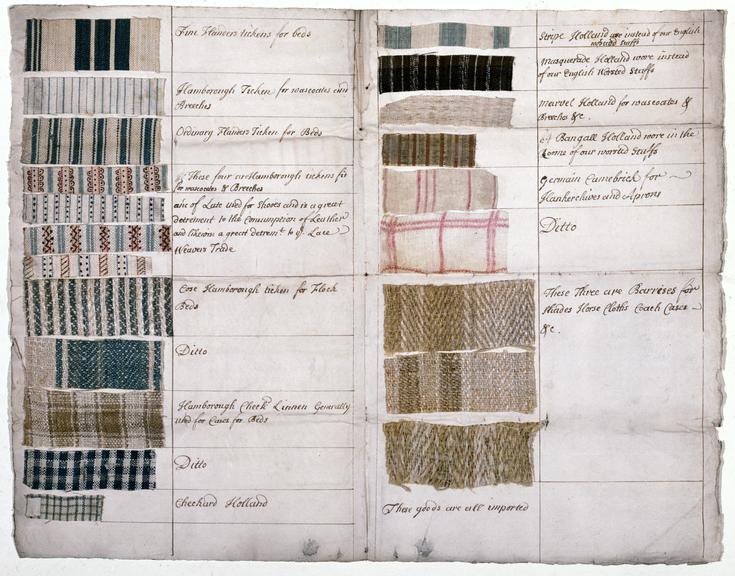 Fine Flanders tickens for beds
Hamborough Ticken for wascoates and
Breeches
Ordinary Flanders Ticken for Beds
These four are Hamborough tickens fit
for wascoates & Breeches
are of Late used for Shoes and is a great
detrement to the Consumption of Leather
and likewise a great detremt. to ye. Lace
Weavers Trade
Corse Hamborough ticken for Flock
Beds
Ditto
Hamborough Check Linnen Generally
used for Cases for Beds
Ditto
Checkard Holland
Stripe Holland are instead of our English
worsted stuffs
Masquerade Holland wore instead
of our English Worsted Stuffs
Marvel Holland for wascoates &
Breeches &c.
Bangall Holland wore in the
Rooms of our worsted Stuffs
Germain Camebrick for
Hankerchives and Aprons
Ditto
These Three are Barrises for
Shades Horse Cloths Coach Cases
&c.
These goods are all imported